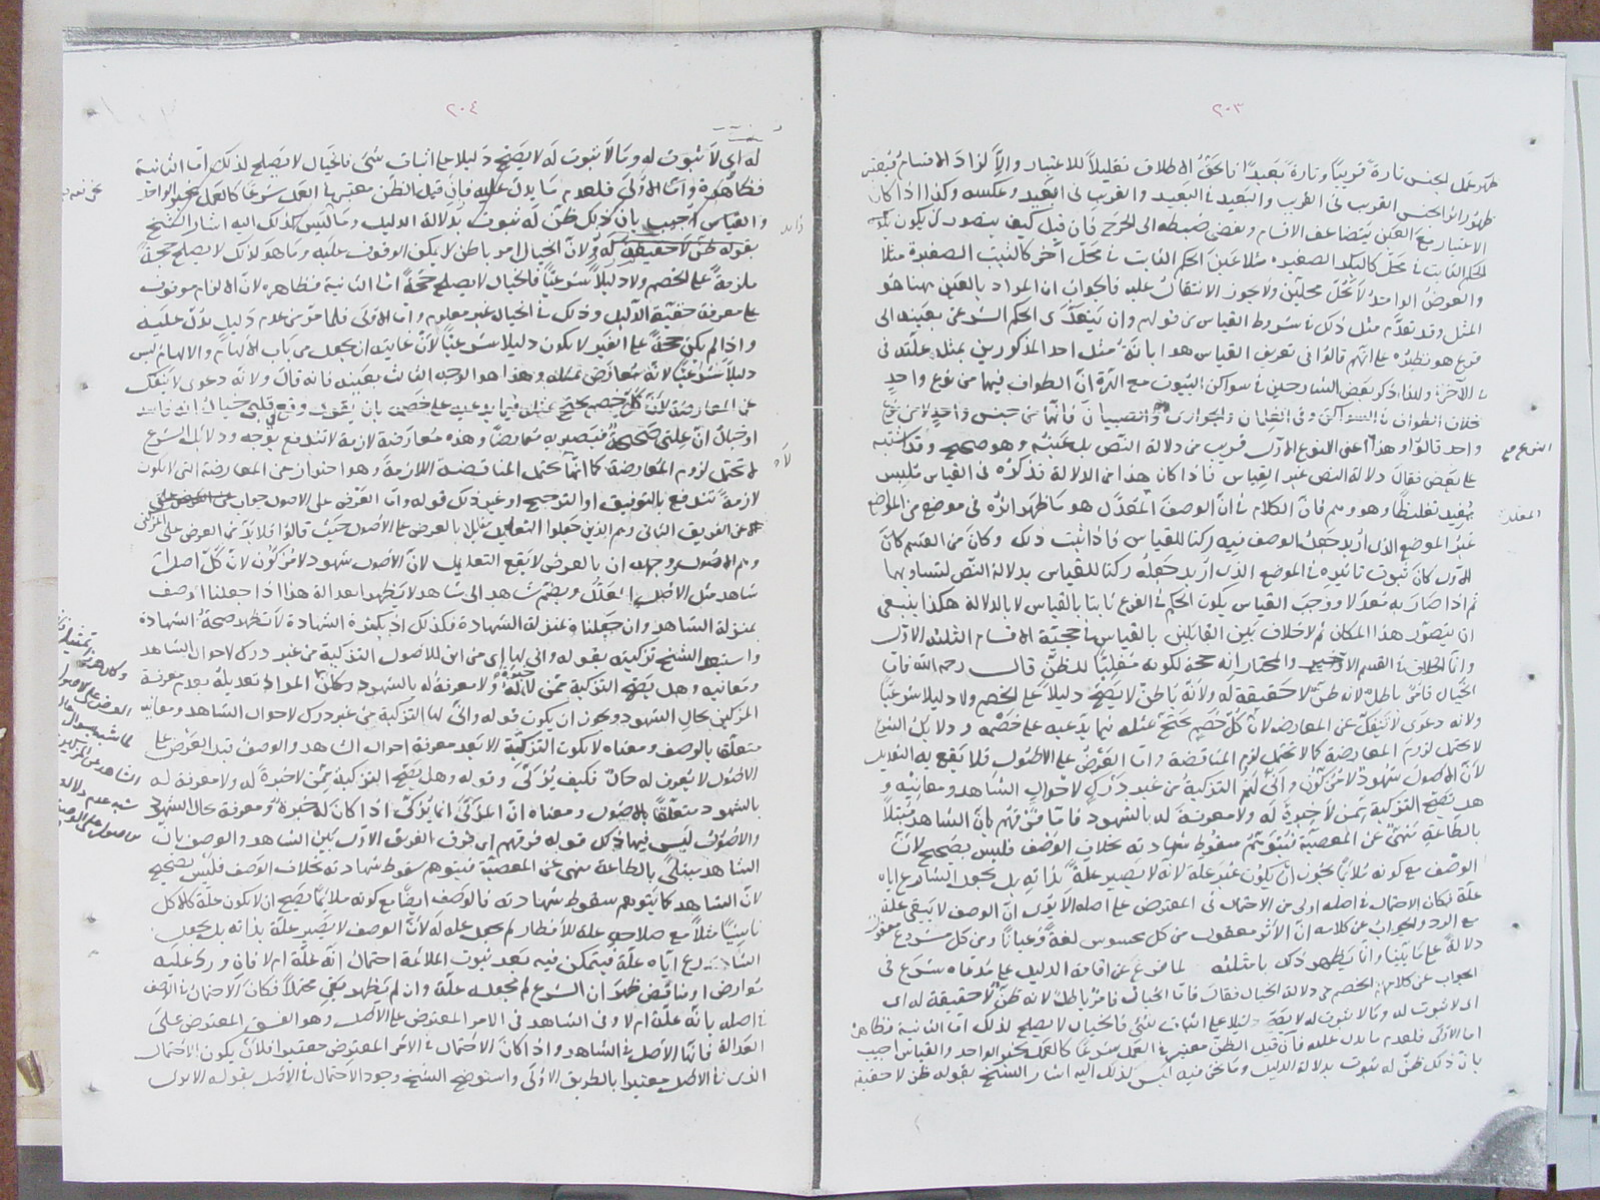 ٢٠٣
ظهر عمل الجنس تارة قريبًا وتارة بعيدًا انا بحق الاطلاق تقليلاً للاعتبار والا لزاد الاقسام
ظهور اثر الجنس القريب في القريب والبعيد في البعيد والقريب في البعيد وعكسه وكذا اذا كان
الاعتبار مع العين يتضاعف الاقسام ويفضى ضبطه الى الحرج فان قيل كيف يتصور ان يكون
الحكم الثابت في محل كالبكر الصغيرة مثلا عين الحكم الثابت في محل آخر كالثيب الصغيرة مثلا
والعرض الواحد لا يحل محلين ولا يجوز الانتقال عليه فالجواب ان المراد بالعين ههنا هو
المثل وقد تقدم مثل ذلك في شروط القياس في قولهم وان يتعدى الحكم الشرعى بعينه الى
فرع هو نظيره على انهم قالوا في تعريف القياس هو ابانة مثل احد المذكورين بمثل علته في
الآخر ولهذا ذكر بعض الشارحين في سواكن البيوت مع الهرة ان الطواف فيهما من نوع واحد
خلاف الطواف في السواكن وفي الغلمان والجوارى والصبيان فانها من جنس واحد لا من نوع
واحد قالوا وهذا اعنى النوع الاول قريب من دلالة النص بل عينه وهو صحيح وقد اشتبه
على بعض فقال دلالة النص غير القياس فاذا كان هذا من الدلالة فذكره في القياس تلبيس
يفيد تغليظا وهو وهم فان الكلام في ان الوصف المعدل هو ما ظهر اثره في موضع من المواضع
غير الموضع الذى اريد جعل الوصف فيه ركنا للقياس فاذا ثبت ذلك وكان من القسم كان
الاول كان ثبوت تاثيره في الموضع الذى اريد جعله ركنا للقياس بدلالة النص لتساويهما
ثم اذا صار به معدلا ووجب القياس يكون الحكم في الفرع ثابتا بالقياس لا بالدلالة هكذا ينبغى
ان يتصور هذا المكان ثم لا خلاف بين القائلين بالقياس في حجية الاقسام الثلثة الاول
وانما الخلاف في القسم الاخير والمختار انه حجة لكونه مغلبًا للظن قال رحمه الله فاما
الخيال فامر باطل لانه ظن لا حقيقة له ولانه باطن لا يصح دليلا على الخصم ولا دليلا شرعيًا
ولانه دعوى لا تنفك عن المعارضة لان كل خصم يحتج بمثله فيما يدعيه على خصمه ودلائل الشرع
لا تحتمل لزوم المعارضة كما لا تحتمل لزوم المناقضة واما العرض على الاصول فلا يقع به التعديل
لان الاصول شهود لا مزكون وانى لهم التزكية من غير درك لاحوال الشاهد ومعانيه و
هل يصح التزكية ممن لا خبرة له ولا معرفة له بالشهود فاما فرقهم بان الشاهد مبتلا
بالطاعة منهى عن المعصية فيتوهم سقوط شهادته بخلاف الوصف فليس بصحيح لان
الوصف مع كونه ملائما يجوز ان يكون غير علة لانه لا يصير علة بذاته بل بجعل الشارع اياه
علة فكان الاحتمال في اصله اولى من الاحتمال في المعترض على اصله الا يرى ان الوصف لا يبقى علة
مع الرد والجواب عن كلامه ان الاثر معقول من كل محسوس لغة وعيانا ومن كل مشروع معقول
دلالة على ما بينا وانما يظهر ذلك بامثلته لما فرغ عن اقامة الدليل على مدعاه شرع في
الجواب عن كلام الخصم في دلالة الخيال فقال فاما الخيال فامر باطل لانه ظن لا حقيقة له اى
اى لا ثبوت له وما لا ثبوت له لا يصح دليلا على اثبات شئ فالخيال لا يصلح لذلك اما الثانية فظاهرة
اما الاولى فلعدم ما يدل عليه فان قيل الظن معتبر في العمل شرعا كالعمل بخبر الواحد والقياس اجيب
بان ذلك ظن له ثبوت بدلالة الدليل وما نحن فيه ليس لذلك اليه اشار الشيخ بقوله ظن لا حقيقة
النوع صح
المعلل
٢٠٤
له اى لا ثبوت له وما لا ثبوت له لا يصح دليلا على اثبات شئ فالخيال لا يصلح لذلك اما الثانية
فظاهرة واما الاولى فلعدم ما يدل عليه فان قيل الظن معتبر في العمل شرعا كالعمل بخبر الواحد
والقياس اجيب بان ذلك ظن له ثبوت بدلالة الدليل وما ليس كذلك اليه اشار الشيخ
بقوله ظن لا حقيقة له ولان الخيال امر باطن لا يمكن الوقوف عليه وما هو لذلك لا يصلح حجة
ملزمة على الخصم ولا دليلا شرعيا فالخيال لا يصلح حجة اما الثانية فظاهرة لان الالزام موقوف
على معرفة حقية الدليل وذلك في الخيال غير معلوم واما الاولى فلما مر من عدم دليل يدل عليه
واذا لم يكن حجة على الغير لا يكون دليلا شرعيا لان غايته ان يجعل من باب الالهام والالهام ليس
دليلا شرعيا لانه معارض بمثله وهذا هو الوجه الثالث بعينه فانه قال ولانه دعوى لا ينفك
عن المعارضة لان كل خصم يحتج بمثله فيما يدعيه على خصمه بان يقول وقع في قلبى خيال انه فاسد
او خيال ان علتى صحيحة فيصير به معارضا وهذه معارضة لازمة لا تندفع بوجه ودلائل الشرع
لا تحتمل لزوم المعارضة كما انها لا تحتمل المناقضة اللازمة وهو احتراز عن المعارضة التى لا يكون
لازمة تندفع بالتوفيق او الترجيح او غير ذلك قوله واما العرض على الاصول جواب
عن الفريق الثانى وهم الذين جعلوا التعديل بالعرض على الاصول حيث قالوا فلا بد من العرض على المزكى
وهم الاصول وجهه ان بالعرض لا يقع التعديل لان الاصول شهود لا مزكون لان كل اصل
شاهد مثل الاصل المعلل وبضم شاهد الى شاهد لا يظهر العدالة هذا اذا جعلنا الوصف
بمنزلة الشاهد وان جعلناه بمنزلة الشهادة فكذلك اذ بكثرة الشهادة لا تظهر صحة الشهادة
واستبعد الشيخ تزكيته بقوله وانى لها اى من اين للاصول التزكية من غير درك لاحوال الشاهد
ومعانيه وهل يصح التزكية ممن لا خبرة له ولا معرفة له بالشهود وكان المراد تعديله بعدم معرفة
المزكين بحال الشهود ويجوز ان يكون قوله وانى لها التزكية من غير درك لاحوال الشاهد ومعانيه
متعلقا بالوصف ومعناه لا يكون التزكية الا بعد معرفة احوال الشاهد والوصف قبل العرض على
الاصول لا يعرف له حال فكيف يزكى وقوله وهل يصح التزكية ممن لا خبرة له ولا معرفة له
بالشهود متعلقا بالاصول ومعناه ان المزكى انما يزكى اذا كان له خبرة ومعرفة بحال الشهود
والاصول ليس فيها ذلك قوله فرقهم اى فرق الفريق الاول بين الشاهد والوصف بان
الشاهد مبتلى بالطاعة منهى عن المعصية فيتوهم سقوط شهادته بخلاف الوصف فليس بصحيح
لان الشاهد كما يتوهم سقوط شهادته فالوصف ايضا مع كونه ملائما يصح ان لا يكون علة كالاكل
ناسيًا مثلا مع صلاحه علة للافطار لم يجعل علة له لان الوصف لا يصير علة بذاته بل بجعل
الشارع اياه علة فيتمكن فيه بعد ثبوت الملائمة احتمال انه علة ام لا فان ورد عليه
معارض او ناقض ظهر ان الشرع لم يجعله علة وان لم يظهر بقى محتملا فكان الاحتمال في الوصف
في اصله بانه علة ام لا وفى الشاهد في الامر المعترض على الاصل وهو الفسق المعترض على
العدالة فانها الاصل في الشاهد واذا كان الاحتمال في الامر المعترض معتبرا فلأن يكون الاحتمال
الذى في الاصل معتبرا بالطريق الاولى واستوضح الشيخ وجود الاحتمال في الاصل بقوله الا يرى